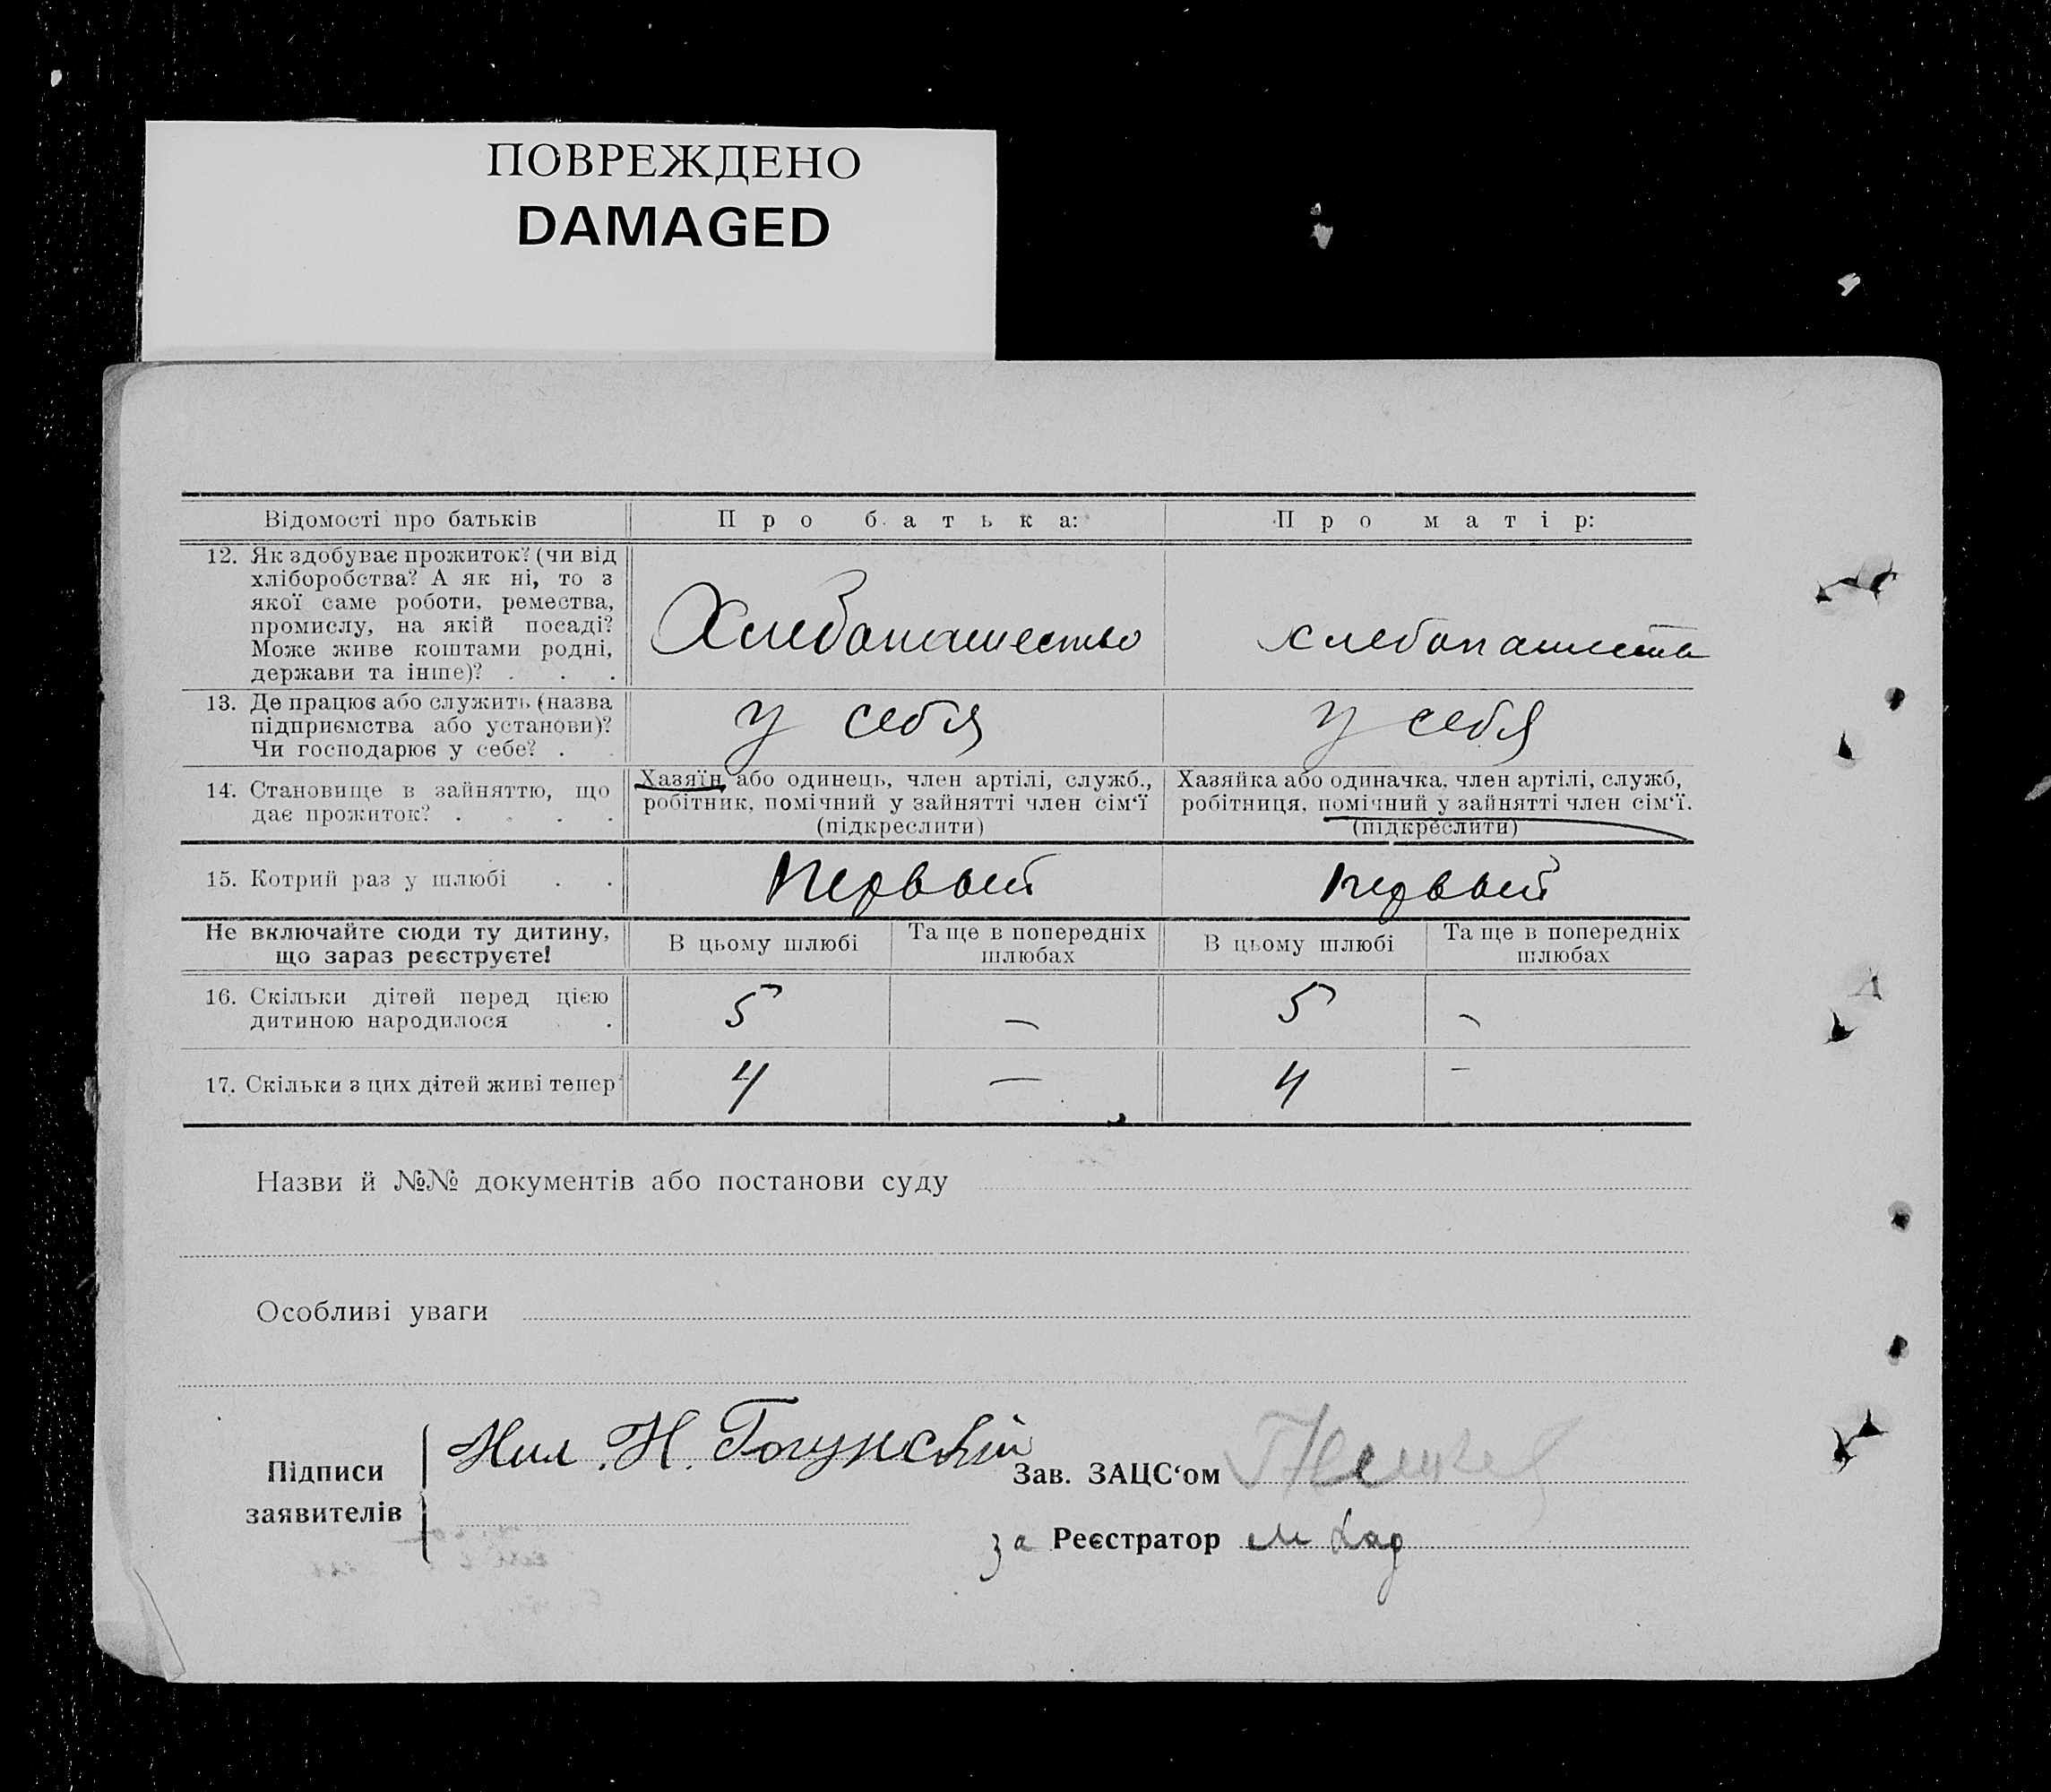 ПОВРЕЖДЕНО
DAMAGED
Відомості про батьків
Про батька:
Про матір:
12. Як здобуває прожиток? (чи від
хліборобства? А як ні, то з
якої саме роботи, ремества,
промислу, на якій посаді?
Може живе коштами родні,
держави та інше)? . . .
Хлебопашество
хлебопашества
13. Де працює або служить (назва
підприємства або установи)?
Чи господарює у себе? .
У себя
У себя
14. Становище в зайняттю, що
дає прожиток? . . . .
Хазяїн або одинець, член артілі, служб.,
робітник, помічний у зайнятті член сім'ї
(підкреслити)
Хазяйка або одиначка, член артілі, служб,
робітниця, помічний у зайнятті член сім'ї.
(підкреслити)
15. Котрий раз у шлюбі . .
Первый
первый
Не включайте сюди ту дитину,
що зараз реєструєте!
В цьому шлюбі
Та ще в попередніх
шлюбах
В цьому шлюбі
Та ще в попередніх
шлюбах
16. Скільки дітей перед цією
дитиною народилося .
5 — 5 —
17. Скільки з цих дітей живі тепер
4 — 4 —
Назви й №№ документів або постанови суду
Особливі уваги
Підписи
заявителів
Н.
Зав. ЗАЦС'ом
за Реєстратор